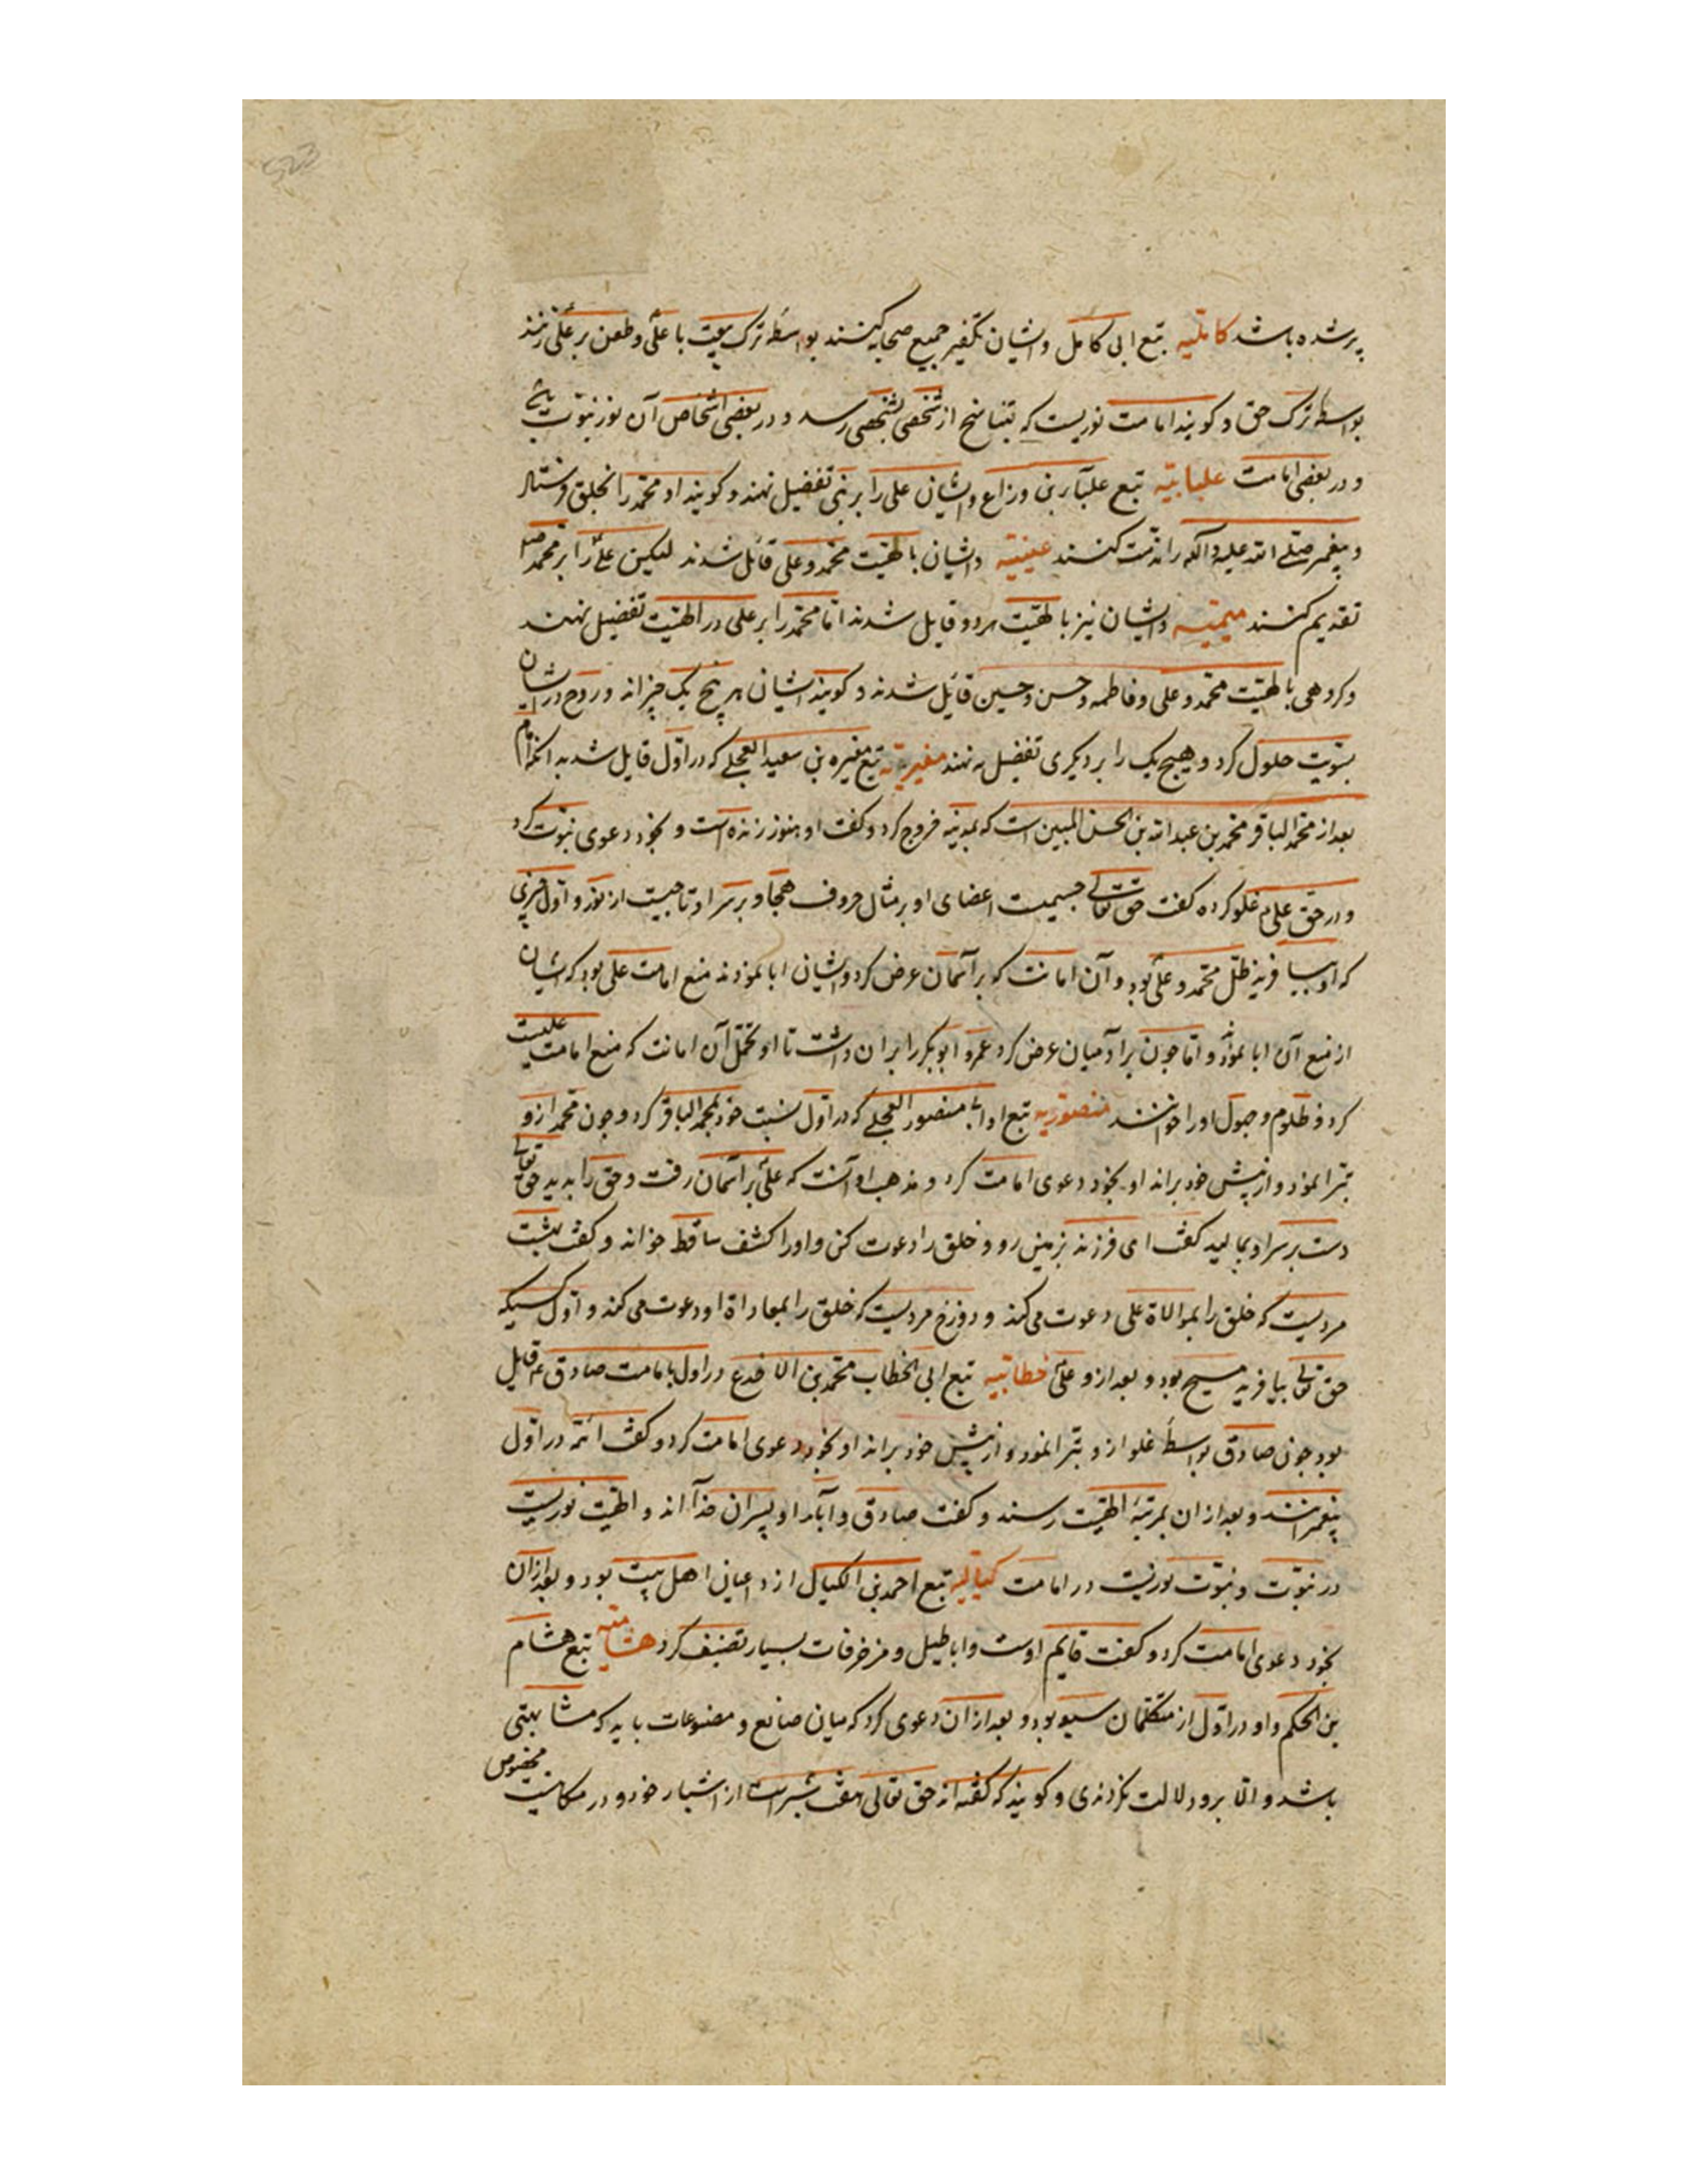 پر شده باشد کاملیه تبع ابی کامل و ایشان تکفیر جمیع صحابه کنند بواسطه ترک بیعت با علی و طعن بر علی زنند
بواسطه ترک حق و کویند امامت نوریست که بتناسخ از شخصی بشخصی رسد و در بعضی اشخاص آن نور نبوت باشد
و در بعضی امامت علیابیّه تبع علباء بن وراع و ایشان علی را بر نبی تفضیل نهند و کویند او محمد را بخلق فرستاد
و پیغمبر صلی الله علیه و آله را مذمت کنند عینیّه و ایشان بالهیّت محمد و علی قائل شدند لیکن علی را بر محمد
تقدیم کنند میمیّه و ایشان نیز بالهیّت هر دو قایل شدند امّا محمد را بر علی در الهیّت تفضیل نهند
و کروهی بالهیّت محمد و علی و فاطمه و حسن و حسین قائل شدند و کویند ایشان هر پنج یک چیزاند و روح در ایشان
بسویت حلول کرد و هیچ یک را بر دیکری تفضیل نه نهند مغیریّه تبع مغیره بن سعید العجلی که در اوّل قایل شد به آنکه امام
بعد از محمد الباقر محمد بن عبد الله بن الحسن است که بمدینه خروج کرد و کفت او هنوز زنده است و بخود دعوی نبوت کرد
و در حق علی غلو کرده کفت حق تعالی جسمیست اعضای او بر مثال حروف هجا و بر سر او تاجیست از نور و اول چیزی
که او بیافرید ظل محمد و علی بود و آن امانت که بر آسمان عرض کرد و ایشان ابا نمودند منع امامت علی بود که ایشان
از منع آن ابا نمودند و اما چون بر آدمیان عرض کرد عمر و ابوبکر را بر آن داشت تا او تحمل آن امانت که منع امامت علیست
کرد و ظلوم و جهول او را خوانند منصوریه تبع او ابی منصور العجلی که در اوّل نسبت خود بمحمد الباقر کرد و چون محمد ازو
تبرا نمود و از پیش خود براند او بخود دعوی امامت کرد و مذهب او آنست که علی بر آسمان رفت و حق را بدید حق تعالی
دست بر سر او بمالید کفت ای فرزند بزمین رو و خلق را دعوت کن و او را کشف ساقط خواند و کفت بهشت
مردیست که خلق را بموالاة علی دعوت می کند و دوزخ مردیست که خلق را بمعاداة او دعوت می کند و اول کسیکه
حق تعالی بیافرید مسیح بود و بعد ازو علی خطابیّه تبع ابی الخطاب محمد بن الاقدع در اول بامامت صادق ع قایل
بود چون صادق بواسطه غلو ازو تبرا نمود و از پیش خود براند او بخود دعوی امامت کرد و کفت ائمّه در اوّل
پیغمبرانند و بعد از آن بمرتبه الهیّت رسند و کفت صادق و آباء او پسران خدااند و الهیّت نوریست
در نبوّت و نبوّت نوریست در امامت کیالیّه تبع احمد بن الکیال از داعیان اهل بیت بود و بعد از آن
بخود دعوی امامت کرد و کفت قایم اوست و اباطیل و مزخرفات بسیار تصنیف کرد هشامیّه تبع هشام
بن الحکم و او در اوّل از متکلمان شیعه بود و بعد از آن دعوی کرد که میان صانع و مصنوعات باید که مشابهتی
باشد و الّا برو دلالت نکردندی و کویند که کفته اند حق تعالی هفت شبر است از اشبار خود و در مکانیست مخصوص